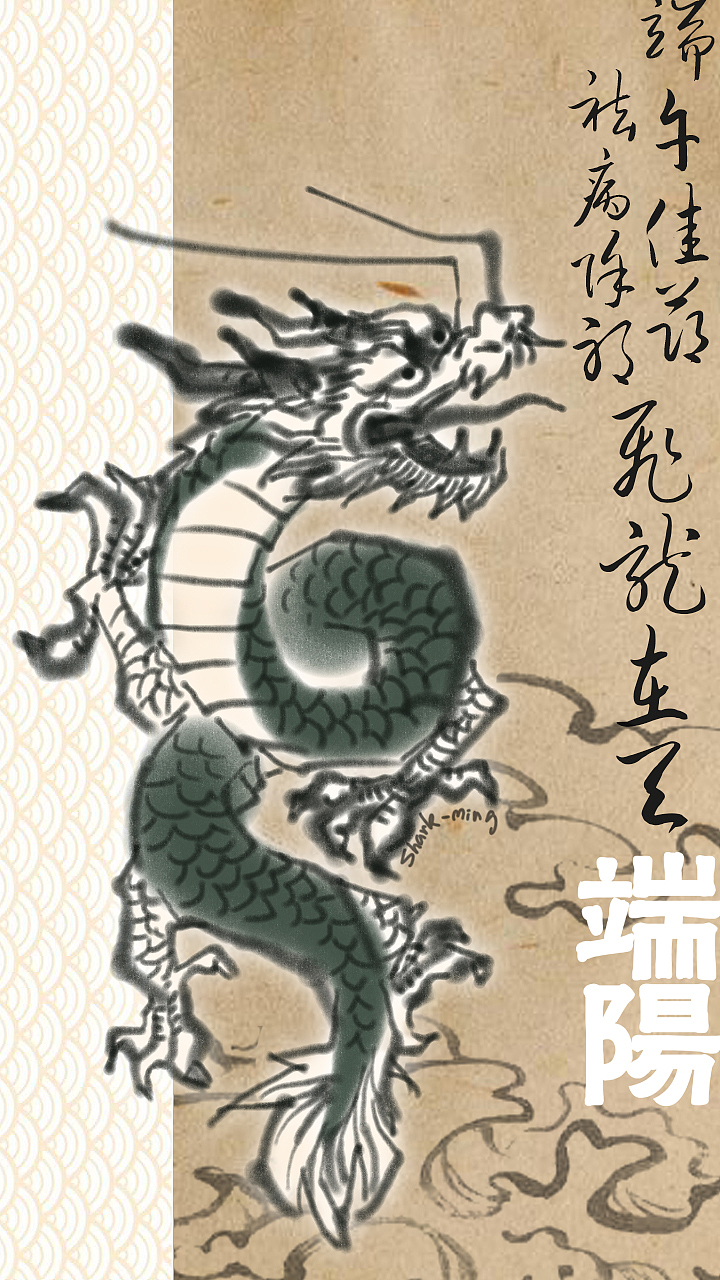 端午佳节
祛病除邪
飛龙在天
端陽
shark-ming